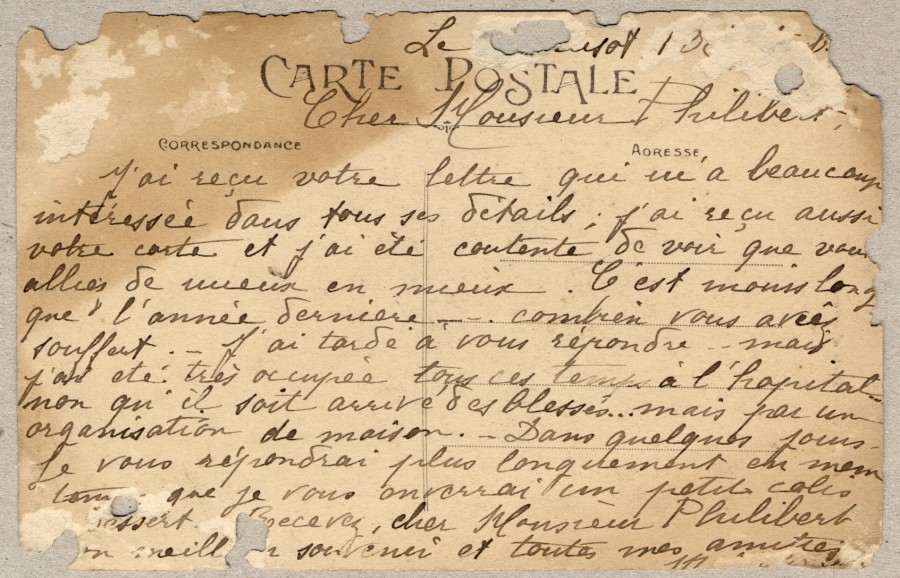 Le usot 13
CARTE POSTALE
Cher Monsieur Philibert,
CORRESPONDANCE
ADRESSE
J'ai reçu votre lettre qui m'a beaucoup
intéressée dans tous ses détails; j'ai reçu aussi
votre carte et j'ai été contente de voir que vous
alliés de mieux en mieux. C'est moins long
que l'année dernière -- combien vous avês
souffert. - J'ai tardé à vous répondre -- mais
j'ai été très occupée tous ces temps à l'hopital..
non qu'il soit arrivé des blessés... mais par un
organisation de maison. - Dans quelques jours
Je vous répondrai plus longuement en mem
tems que je vous enverrai un petit colis
dessert. Recevez, cher Monsieur Philibert
mon meilleur souvenir et toutes mes amitiés